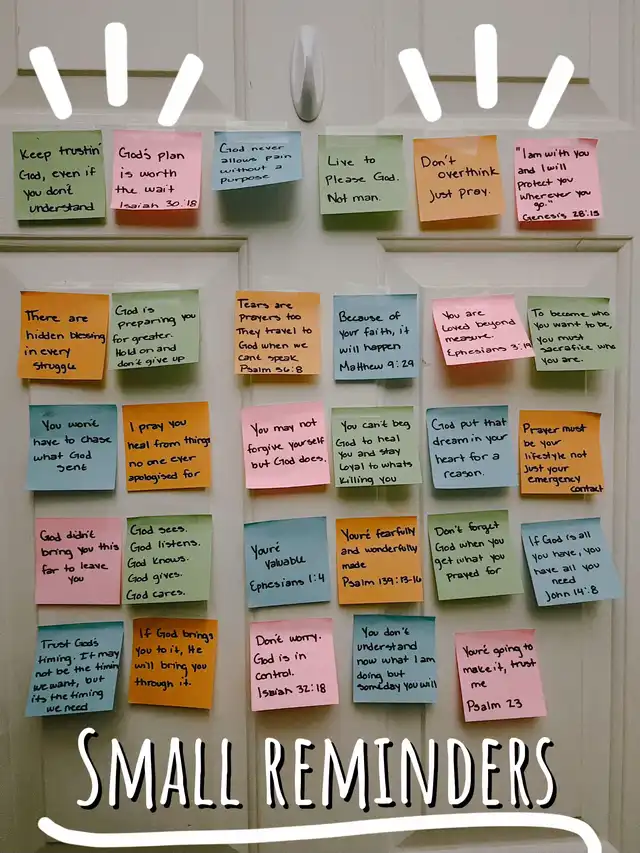 Keep trustin'
God, even if
you don't
understand
God's plan
is worth
the wait
Isaiah 30:18
God never
allows pain
without a
purpose
Live to
Please God.
Not man.
Don't
overthink
Just pray.
"I am with you
and I will
protect you
wherever you
go."
Genesis 28:15
There are
hidden blessing
in every
struggle
God is
preparing you
for greater.
Hold on and
don't give up
Tears are
prayers too
They travel to
God when we
cant speak
Psalm 56:8
Because of
your faith, it
will happen
Matthew 9:29
You are
Loved beyond
measure.
Ephesians 3:19
To become who
you want to be,
you must
sacrafice who
you are.
You won't
have to chase
what God
sent
I pray you
heal from things
no one ever
apologised for
You may not
forgive yourself
but God does.
You can't beg
God to heal
you and stay
Loyal to whats
killing you
God put that
dream in your
heart for a
reason.
Prayer must
be your
lifestyle not
just your
emergency
contact
God didn't
bring you this
far to leave
you
God sees.
God listens.
God knows.
God gives.
God cares.
You're
valuable
Ephesians 1:4
You're fearfully
and wonderfully
made
Psalm 139:13-16
Don't forget
God when you
get what you
prayed for
If God is all
you have, you
have all you
need
John 14:8
Trust God's
timing. It may
not be the timin
we want, but
its the timing
we need
If God brings
you to it, He
will bring you
through it.
Don't worry.
God is in
control.
Isaiah 32:18
You don't
understand
now what I am
doing but
someday you will
You're going to
make it, trust
me
Psalm 23
SMALL REMINDERS